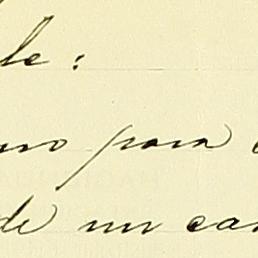 le:
uso para
de un can